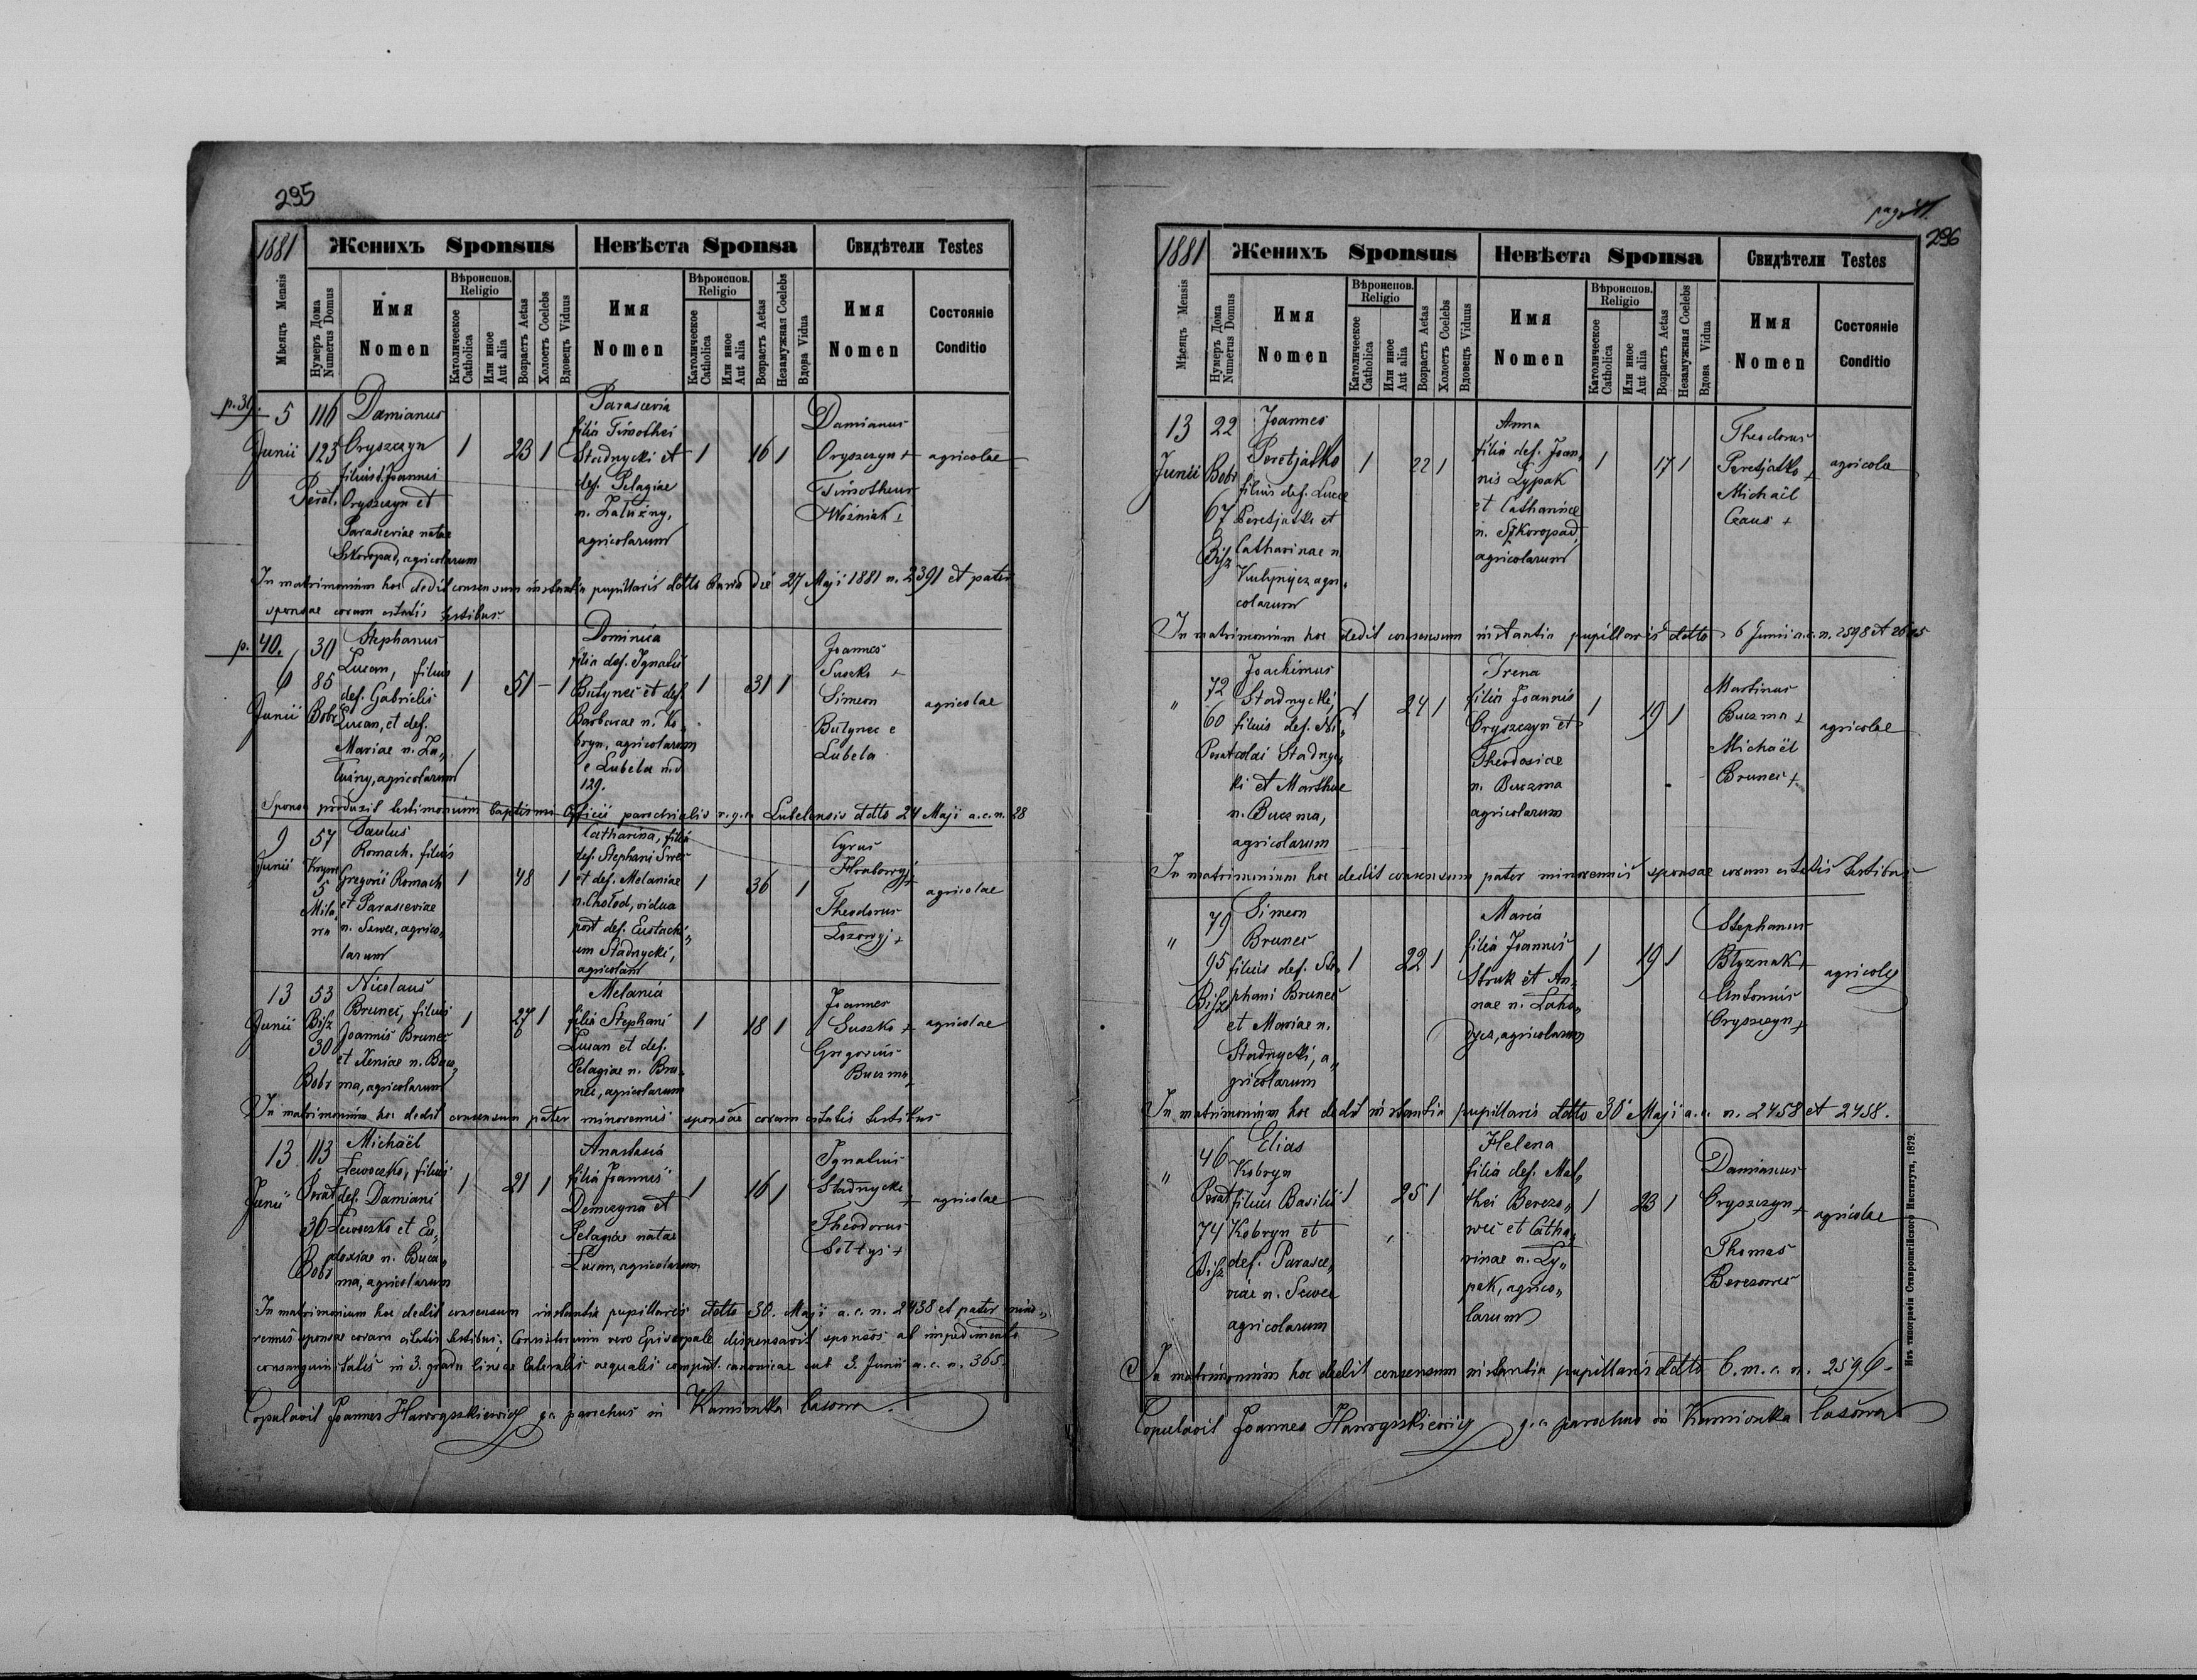 295
1881 Женихъ Sponsus Невѣста Sponsa Свидѣтели Testes
Мѣсяцъ Mensis
Нумеръ Дома Numerus Domus
Имя Nomen
Вѣроиспов. Religio
Католическое Catholica
Или иное Aut alia
Возрастъ Aetas
Холостъ Coelebs
Вдовецъ Viduus
Имя Nomen
Вѣроиспов. Religio
Католическое Catholica
Или иное Aut alia
Возрастъ Aetas
Незамужная Coelebs
Вдова Vidua
Имя Nomen
Состояніе Conditio
p. 39.
5 Junii
116
123
Perat.
Damianus
Oryszczyn
filius d. Joannis
Oryszczyn et
Parasceviae natae
Szkoropad, agricolarum
1 23 1
Parascevia
filia Timothei
Stadnycki et
def. Pelagiae
n. Załużny,
agricolarum
1 16 1
Damianus
Oryszczyn +
Timotheus
Woźniak +
agricolae
In matrimonium hoc dedit consensum instantia pupillaris ddto Rawa die 27 Maji 1881 n. 2391 et pater
sponsae coram citatis testibus.
p. 40.
6 Junii
30
85
Bobr
Stephanus
Lucan, filius
def. Gabrielis
Lucan, et def.
Mariae n. Za„
łużny, agricolarum
1 51 — 1
Dominica
filia def. Ignatii
Butynec et def.
Barbarae n. Ko
bryn, agricolarum
e Lubela n.d
129.
1 31 1
Joannes
Suszko +
Simeon
Butynec e
Lubela
agricolae
Sponsa produxit testimonium baptismi Officii parochialis r.g.c. Lubelensis ddto 24 Maji a.c.n. 28
9 Junii
57
5
Paulus
Romach, filius
Gregorii Romach
et Parasceviae
n. Sewec, agrico„
larum
1 48 1
Catharina, filia
def. Stephani Swec
et def. Melaniae
n. Chołod, vidua
post def. Eustachi„
um Stadnycki,
agricolam
1 36 1
Cyrus
Hrabowyj +
Theodorus
Lozowyj +
agricolae
13 Junii
53
Bisz
30
Bobr
Nicolaus
Brunec, filius
Joannis Brunec
et Xeniae n. Bucz„
ma, agricolarum
1 27 1
Melania
filia Stephani
Lucan et def.
Pelagiae n. Bru„
nec, agricolarum
1 18 1
Joannes
Suszko +
Gregorius
Buczma +
agricolae
In matrimonium hoc dedit consensum pater minorennis sponsae coram citatis testibus
13 Junii
113
Perat
36
Bobr
Michaël
Lewoczko, filius
def. Damiani
Lewoczko et Eu„
doxiae n. Bucz„
ma, agricolarum
1 21 1
Anastasia
filia Joannis
Demczyna et
Pelagiae natae
Lucan, agricolarum
1 16 1
Ignatius
Stadnycki +
Theodorus
Sołtys +
agricolae
In matrimonium hoc dedit consensum instantia pupillaris ddto 30. Maji a.c.n. 2438 et pater mino„
rennis sponsae coram citatis testibus; Consistorium vero Episcopale dispensavit sponsos ab impedimento
consanguinitatis in 3. gradu lineae lateralis aequalis comput. canonicae sub 3. Junii a.c.n. 365.
Copulavit Joannes Hawryszkiewicz g.c. parochus in Kamionka lasowa.
296
1881 Женихъ Sponsus Невѣста Sponsa Свидѣтели Testes
Мѣсяцъ Mensis
Нумеръ Дома Numerus Domus
Имя Nomen
Вѣроиспов. Religio
Католическое Catholica
Или иное Aut alia
Возрастъ Aetas
Холостъ Coelebs
Вдовецъ Viduus
Имя Nomen
Вѣроиспов. Religio
Католическое Catholica
Или иное Aut alia
Возрастъ Aetas
Незамужная Coelebs
Вдова Vidua
Имя Nomen
Состояніе Conditio
13 Junii
22
Bobr
67
Bisz
Joannes
Peretjatko
filius def. Lucae
Peretjatko et
Catharinae n.
agri„
colarum
1 22 1
Anna
filia def. Joan„
nis Lypak
et Catharinae
n. Szkoropad,
agricolarum
1 17 1
Theodorus
Peretjatko +
Michaël
Czaus +
agricolae
In matrimonium hoc dedit consensum instantia pupillaris ddto 6 Junii a.c.n. 2598 et
"
72
60
Perat
Joachimus
Stadnycki,
filius def. Ni„
colai Stadnyc„
ki et Marthae
n. Buczma,
agricolarum
1 24 1
Irena
filia Joannis
Oryszczyn et
Theodosiae
n. Buczma
agricolarum
1 19 1
Martinus
Buczma +
Michaël
Brunec +
agricolae
In matrimonium hoc dedit consensum pater minorennis sponsae coram citatis testibus
"
79
95
Bisz
Simeon
Brunec
filius def. Ste„
phani Brunec
et Mariae n.
Stadnycki, a„
gricolarum
1 22 1
Maria
filia Joannis
Struk et An„
nae n. Laho„
dycz, agricolarum
1 19 1
Stephanus
Blyznak +
Antonius
Oryszczyn +
agricolae
In matrimonium hoc dedit instantia pupillaris ddto 30 Maji a.c. n. 2458 et 2458.
"
46
Perat
74
Bisz
Elias
Kobryn
filius Basilii
Kobryn et
def. Parasce„
viae n. Sewec
agricolarum
1 25 1
Helena
filia def. Mat„
thei Berezo„
wec et Catha„
rinae n. Ly„
pak, agrico„
larum
1 23 1
Damianus
Oryszczyn +
Thomas
Berezowec
agricolae
In matrimonium hoc dedit consensum instantia pupillaris ddto 6. m. c. n. 2596.
Copulavit Joannes Hawryszkiewicz g.c. parochus in Kamionka lasowa
Изъ типографіи Ставропигійского Института, 1879.